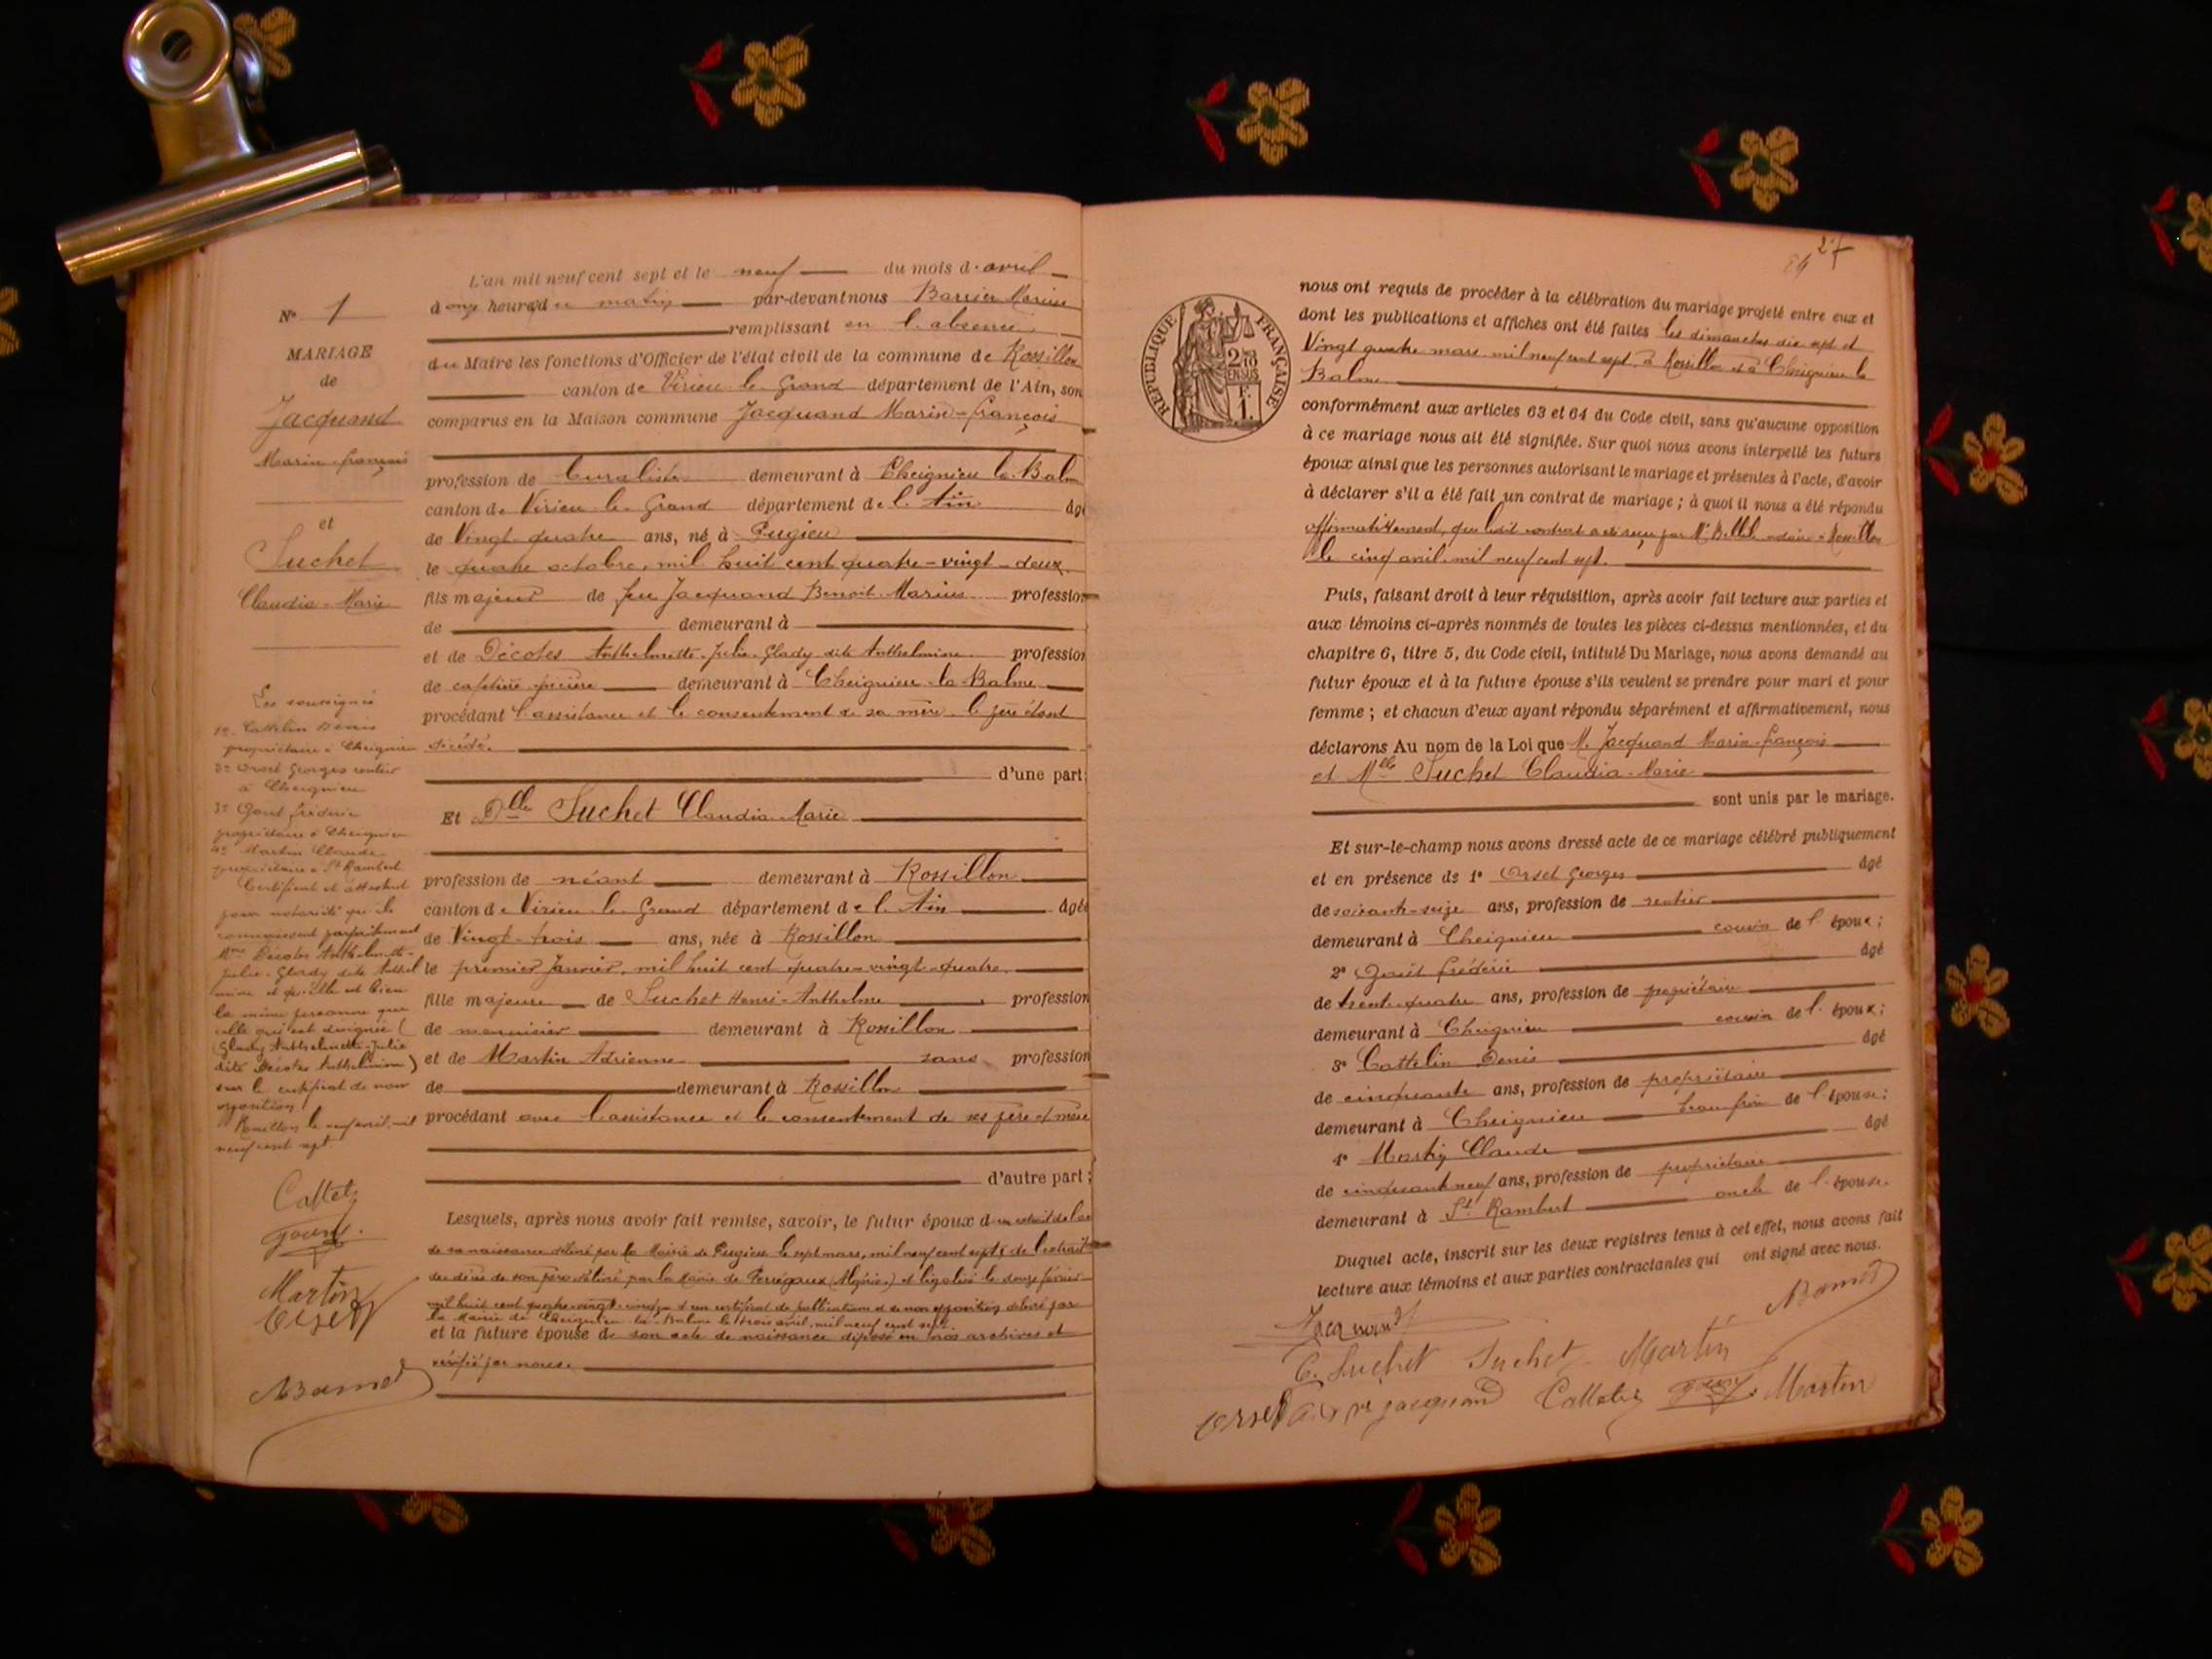 N° 1
MARIAGE
de
Jacquand
Marin-françois
et
Suchet
Claudia-Marie
Les soussignés
1° Cattelin Denis
propriétaire à Cheignieu
2° Orset Georges rentier
à Cheignieu
3° Goust frédéric
propriétaire à Cheignieu
4° Martin Claude
propriétaire à St Rambert
Certifient et attestent
pour notoriété qu'ils
connaissent parfaitement
Mme Décotes Anthelmette-
Julie-Glady dite Anthel
mine et qu'elle est bien
la même personne que
celle qui est désignée (
Glady Anthelmette-Julie
dite Décotes Anthelmine)
sur le certificat de non
opposition
Rossillon le neuf avril mil
neuf cent sept.
Martin
Orset
L'an mil neuf cent sept et le neuf du mois d'avril
à onze heures du matin par-devant nous
remplissant en l'absence
du Maire les fonctions d'Officier de l'état civil de la commune de Rossillon
canton de Virieu-le-Grand département de l'Ain, son
comparus en la Maison commune Jacquand Marin-françois
profession de demeurant à Cheignieu-la-Balme
canton de Virieu-le-Grand département de l'Ain âgé
de Vingt-quatre ans, né à Pugieu
le quatre octobre, mil huit cent quatre-vingt-deux
fils majeur de feu Jacquand Benoit-Marius profession
de demeurant à
et de Décotes Anthelmette-Julie-Glady dite Anthelmine profession
de demeurant à Cheignieu-la-Balme
procédant l'assistance et le consentement de sa mère, le père étant
décédé.
d'une part;
Et Dlle Suchet Claudia-Marie
profession de néant demeurant à Rossillon
canton de Virieu-le-Grand département de l'Ain âgée
de Vingt-trois ans, née à Rossillon
le premier Janvier, mil huit cent quatre-vingt-quatre
fille majeure de Suchet Henri-Anthelme profession
de menuisier demeurant à Rossillon
et de Martin Adrienne sans profession
de demeurant à Rossillon
procédant avec l'assistance et le consentement de ses père et mère
d'autre part;
Lesquels, après nous avoir fait remise, savoir, le futur époux d'un extrait de l'acte
de sa naissance délivré par la Mairie de Pugieu le sept mars, mil neuf cent sept; de l'extrait
du décès de son père délivré par la Mairie de Perrégaux (Algérie) et légalisé le douze février
mil huit cent quatre-vingt-cinq et d'un certificat de publications et de non opposition délivré par
la Mairie de Cheignieu-la-Balme le trois avril, mil neuf cent sept
et la future épouse de son acte de naissance déposé en nos archives et
vérifié par nous.
27
RÉPUBLIQUE FRANÇAISE
nous ont requis de procéder à la célébration du mariage projeté entre eux et
dont les publications et affiches ont été faites les dimanches dix sept et
Vingt quatre mars mil neuf cent sept à Rossillon et à Cheignieu la
Balme
conformément aux articles 63 et 64 du Code civil, sans qu'aucune opposition
à ce mariage nous ait été signifiée. Sur quoi nous avons interpellé les futurs
époux ainsi que les personnes autorisant le mariage et présentes à l'acte, d'avoir
à déclarer s'il a été fait un contrat de mariage; à quoi il nous a été répondu
affirmativement, que ledit contrat a été reçu par Me notaire à Rossillon
le cinq avril mil neuf cent sept.
Puis, faisant droit à leur réquisition, après avoir fait lecture aux parties et
aux témoins ci-après nommés de toutes les pièces ci-dessus mentionnées, et du
chapitre 6, titre 5, du Code civil, intitulé Du Mariage, nous avons demandé au
futur époux et à la future épouse s'ils veulent se prendre pour mari et pour
femme; et chacun d'eux ayant répondu séparément et affirmativement, nous
déclarons Au nom de la Loi que M. Jacquand Marin-françois
et Mlle Suchet Claudia-Marie
sont unis par le mariage.
Et sur-le-champ nous avons dressé acte de ce mariage célébré publiquement
et en présence de 1° Orset Georges âgé
de soixante-seize ans, profession de rentier
demeurant à Cheignieu cousin de l'époux;
2° Goust frédéric âgé
de trente-quatre ans, profession de propriétaire
demeurant à Cheignieu cousin de l'époux;
3° Cattelin Denis âgé
de cinquante ans, profession de propriétaire
demeurant à Cheignieu de l'épouse;
4° Martin Claude âgé
de cinquante neuf ans, profession de propriétaire
demeurant à St Rambert oncle de l'épouse.
Duquel acte, inscrit sur les deux registres tenus à cet effet, nous avons fait
lecture aux témoins et aux parties contractantes qui ont signé avec nous.
Jacquand
C. Suchet Suchet Martin
Orset Jacquand Martin